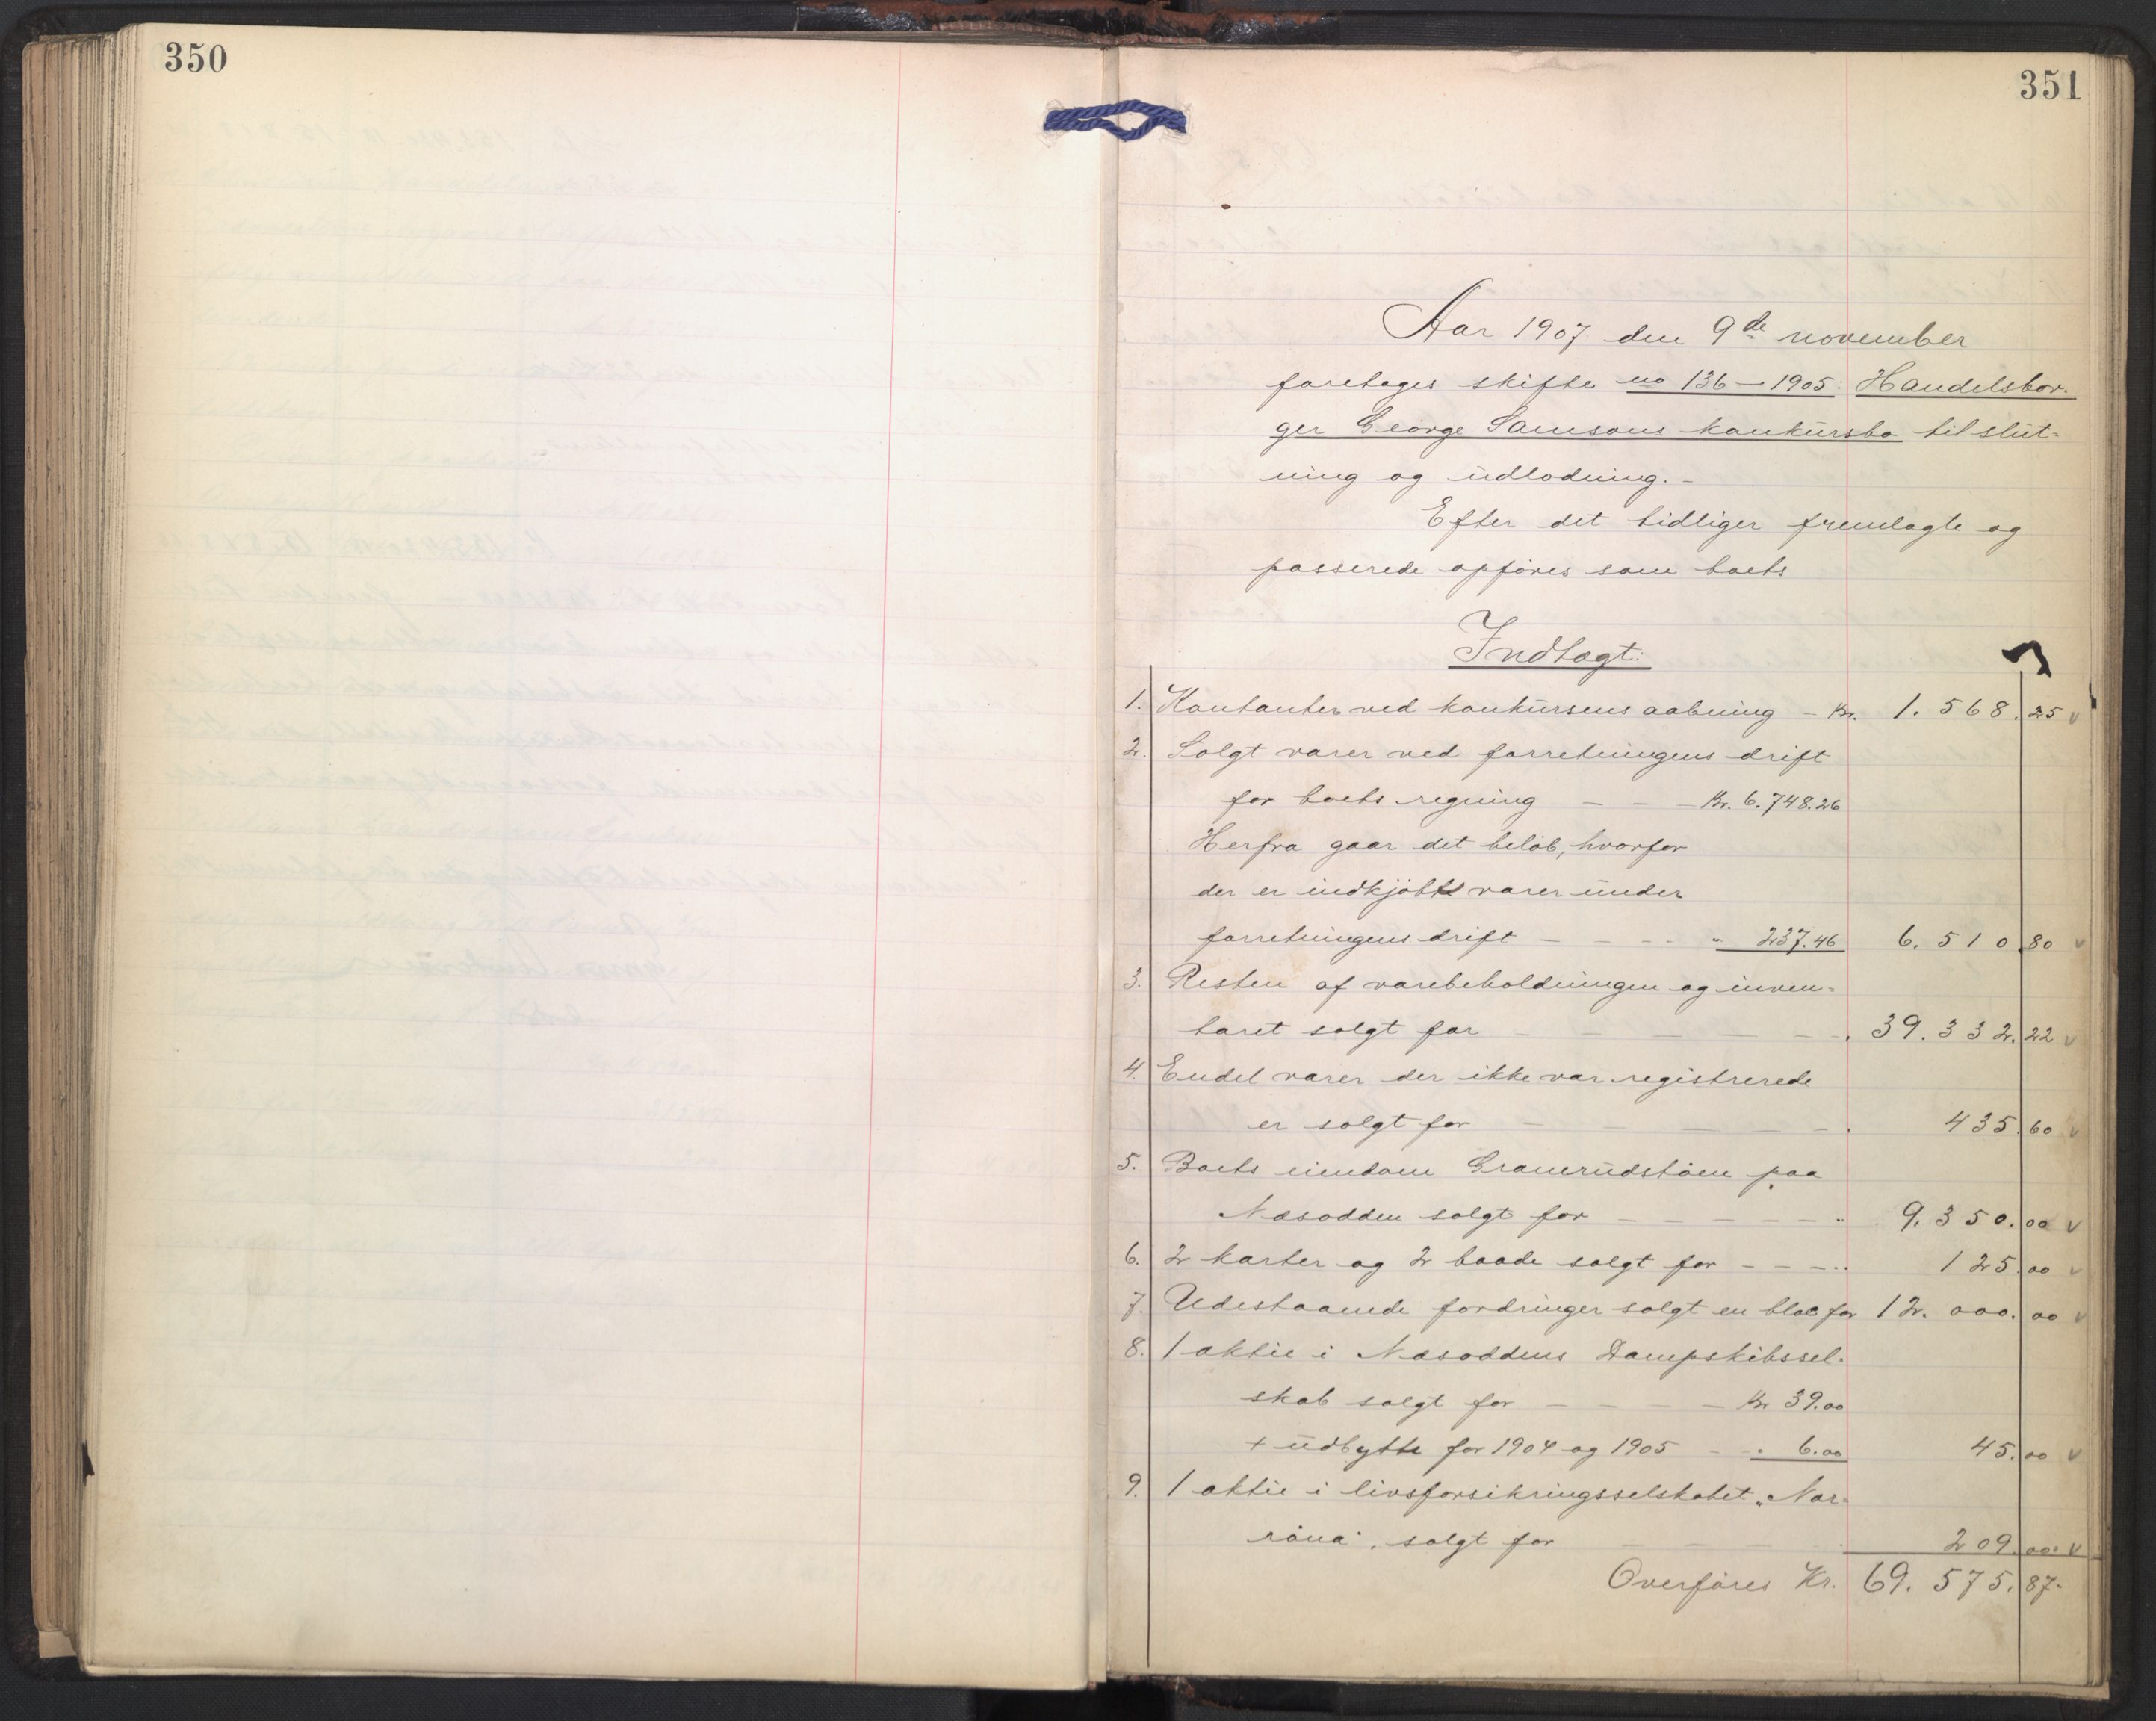 350
351
Aar 1907 den 9de november
foretages skifte no 136 – 1905: Handelsbor-
ger George Samsons konkursbo til slut-
ning og udlodning. –
Efter det tidliger fremlagte og
passerede opføres som boets
Indtægt:
1. Kontanter ved konkursens aabning – Kr. 1.568.25
2. Solgt varer ved forretningens drift
for boets regning – – – Kr. 6.748.26
Herfra gaar det beløb, hvorfor
der er indkjøbt varer under
forretningens drift – – – – " 237.46 6.510.80
3. Resten af varebeholdningen og inven-
taret solgt for – – – – – 39.332.22
4. Endel varer der ikke var registrerede
er solgt for – – – – – 435.60
5. Boets eiendom Granerudstøen paa
Næsodden solgt for – – – – – " 9.350.00
6. 2 karter og 2 baade solgt for – – – " 125.00
7. Udestaaende fordringer solgt en bloc for 12.000.00
8. 1 aktie i Næsoddens Dampskibssel-
skab solgt for – – – – – Kr 39.00
+ udbytte for 1904 og 1905 – " 6.00 45.00
9. 1 aktie i livsforsikringsselskabet „Nor-
røna", solgt for – – – – 209.00
Overføres Kr. 69.575.87